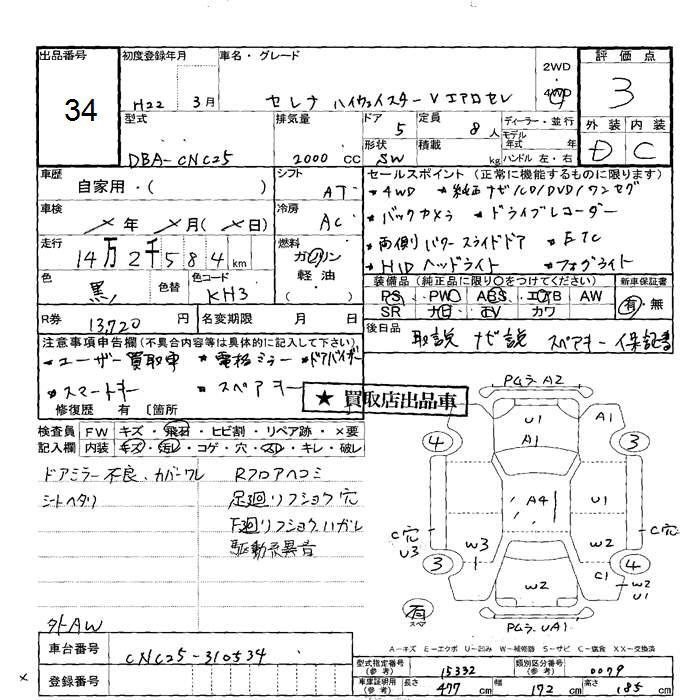 出品番号
34
初度登録年月
H22 3月
車名・グレード
セレナ ハイウェイスターV エアロセレ
2WD
・
4WD
評価点
3
外装 内装
D C
型式
DBA-CNC25
排気量
2000 CC
ドア
5
定員
8人
形状
SW
積載
kg
ディーラー・並行
モデル
年式 年
ハンドル 左・右
車歴
自家用・( )
シフト
AT
車検
年 月( 日)
冷房
AC
走行
14万2千584km
燃料
ガソリン
軽油
( )
色
黒
色替
色コード
KH3
R券
13,720円
名変期限 月 日
セールスポイント (正常に機能するものに限ります)
*4WD *純正ナビ/CD/DVD/ワンセグ
*バックカメラ *ドライブレコーダー
*両側パワースライドドア *ETC
*HIDヘッドライト *フォグライト
装備品 (純正品に限り○をつけてください)
PS PW ABS エアB AW
SR ナビ TV カワ
新車保証書
有・無
後日品
取説 ナビ説 スペアキー 保証書
注意事項申告欄 (不具合内容等は具体的に記入して下さい)
*ユーザー買取車 *電格ミラー *ドアバイザー
*スマートキー *スペアキー
修復歴 有 〔箇所
★ 買取店出品車
検査員 FW キズ・飛石・ヒビ割・リペア跡・×要
記入欄 内装 キズ・汚レ・コゲ・穴・スレ・キレ・破レ
ドアミラー不良、カバーワレ
シートヘタリ
Rフロアヘコミ
足廻リフショク穴
下廻リフショク、ハガレ
駆動系異音
外AW
車台番号
CNC25-310534
登録番号
×
PムラA2
U1
A1
A1
4
3
A4
U1
C穴
U3
W3
W2
C穴
3
4
W2
C1
W2
U1
有
スペア
PムラUA1
A-キズ E-エクボ U-凹み W-補修跡 S-サビ C-腐食 XX-交換済
型式指定番号
(参考)
15332
類別区分番号
(参考)
0079
車庫証明用
(参考)
長さ 477cm 幅 172cm 高さ 185cm